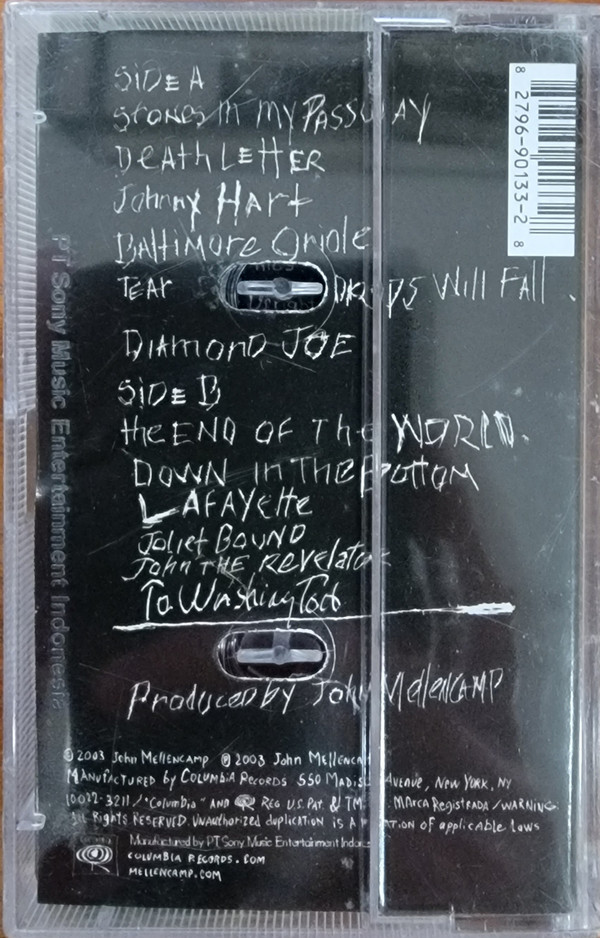 SiDE A
Stones in my PASSWAY
DeATH LeTTER
Johnny HArt
BAltimore Oriole
TEAr DROPS Will FAll
DIAmonD JOE
SiDE B
the END OF THE WORLD.
DOWN in THE Bottom
LAFAYette
Joliet BOUND
John THE Revelator
To Washington
Produced by John MellenCAMP
© 2003 John MELLENCAMP ℗ 2003 John MELLENCA
MANUFACTURED by COLUMBIA RECORDS 550 MADIS AVENUE, NEW YORK, NY
10022-3211 / "Columbia" AND REG U.S. PAT. & TM. MARCA REGISTRADA / WARNING:
All RIGHTS RESERVED. UNAUTHORIZED duplication is A TION of applicable laws
Manufactured by PT Sony Music Entertainment Indones
COLUMBIA RECORDS.COM
MELLENCAMP.COM
8 2796-90133-2 8
PT Sony Music Entertainment Indonesia